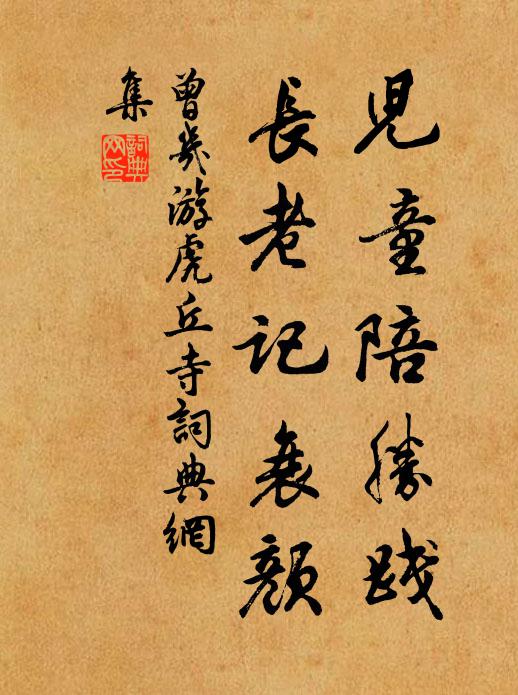 兒童陪勝踐
長老記衰顏
曾幾游虎丘寺詞典網
集
詞典網印